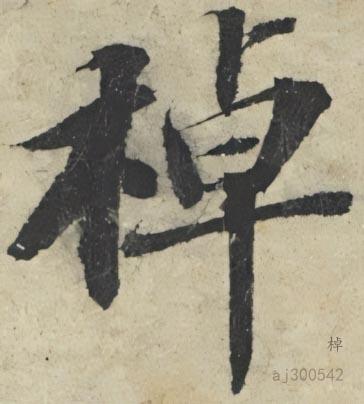 棹
棹
aj300542